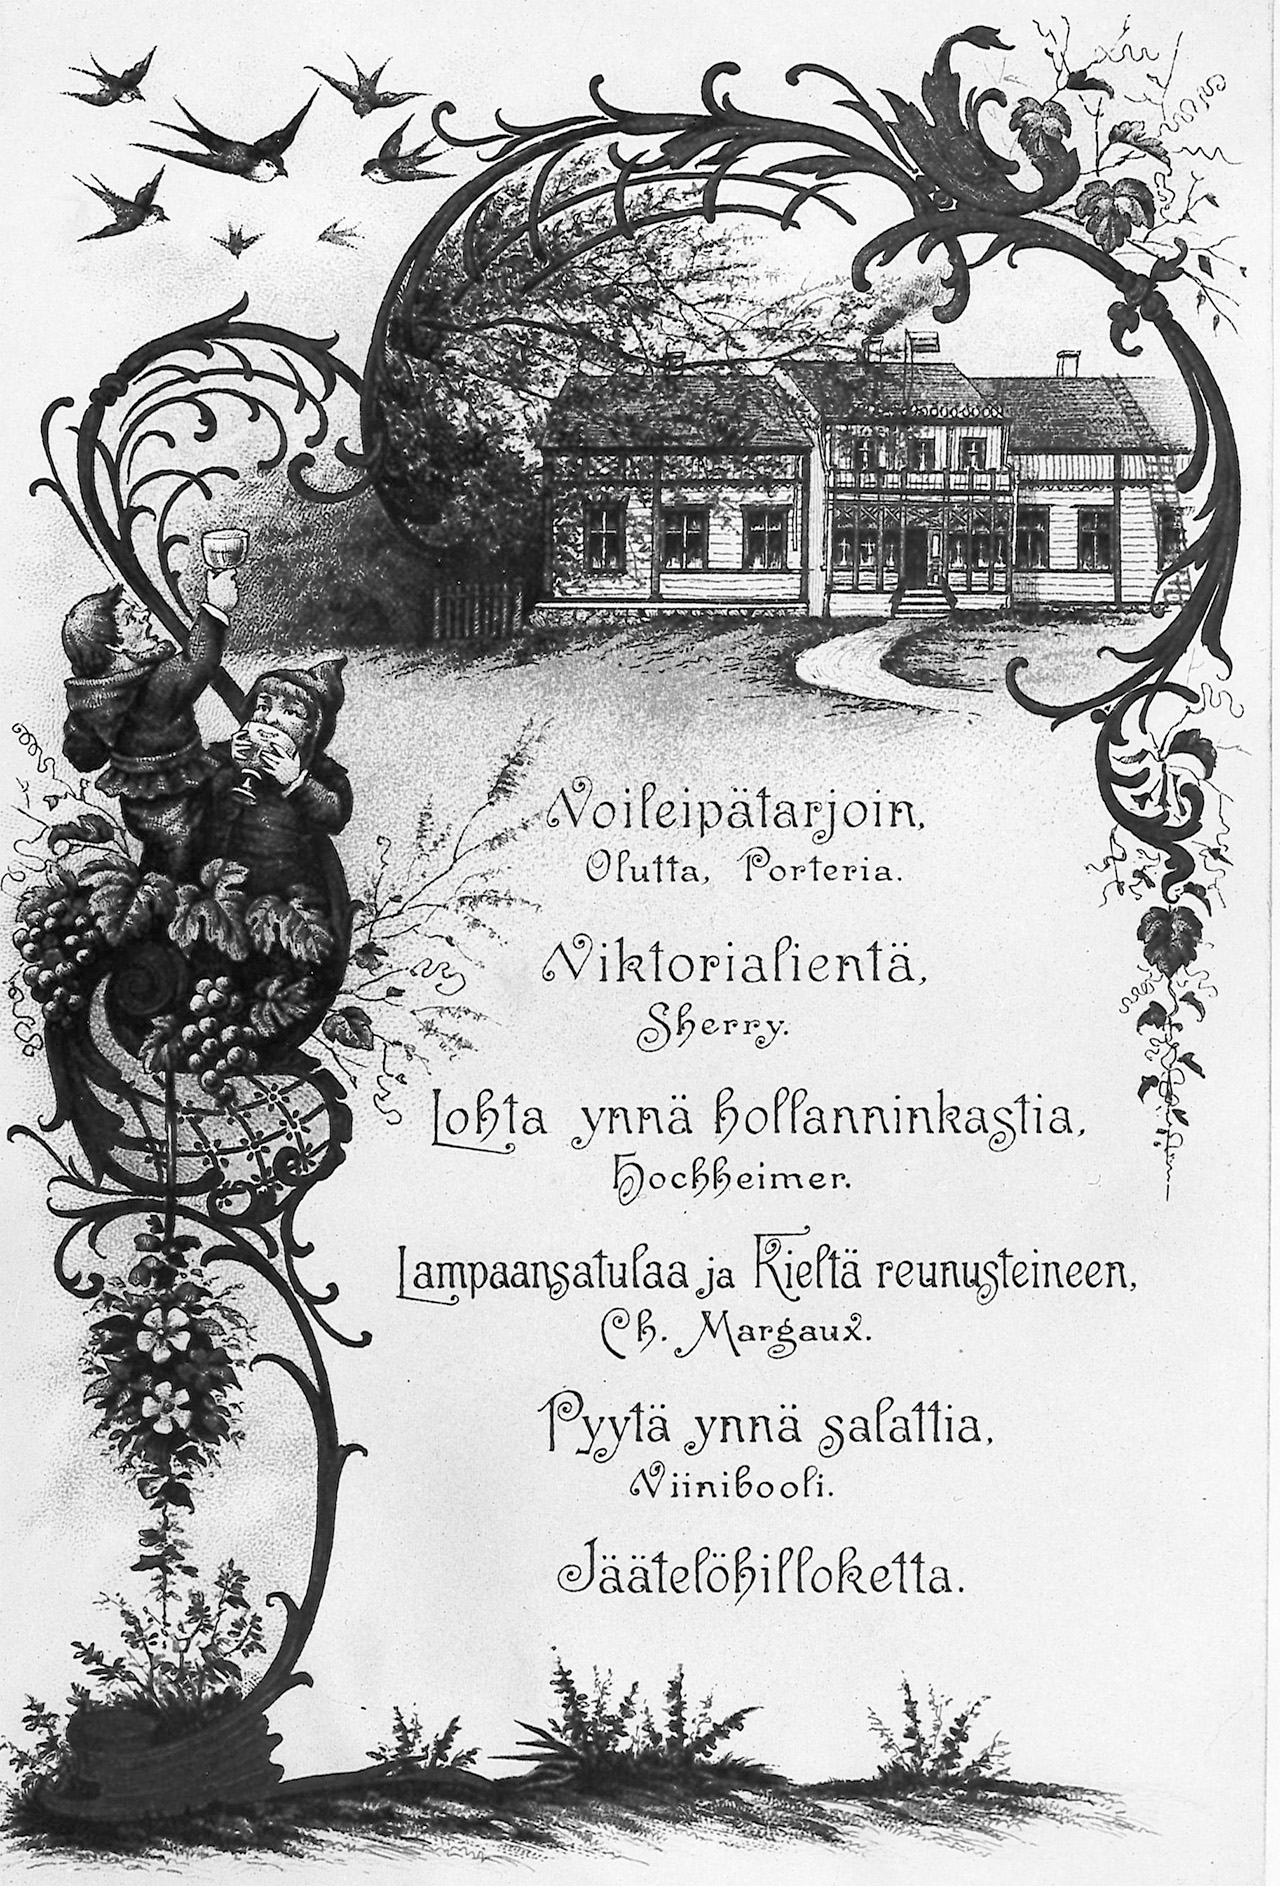 Voileipätarjoin,
Olutta, Porteria.
Viktorialientä,
Sherry.
Lohta ynnä hollanninkastia,
Hochheimer.
Lampaansatulaa ja Kieltä reunusteineen,
Ch. Margaux.
Pyytä ynnä salattia,
Viinibooli.
Jäätelöhilloketta.